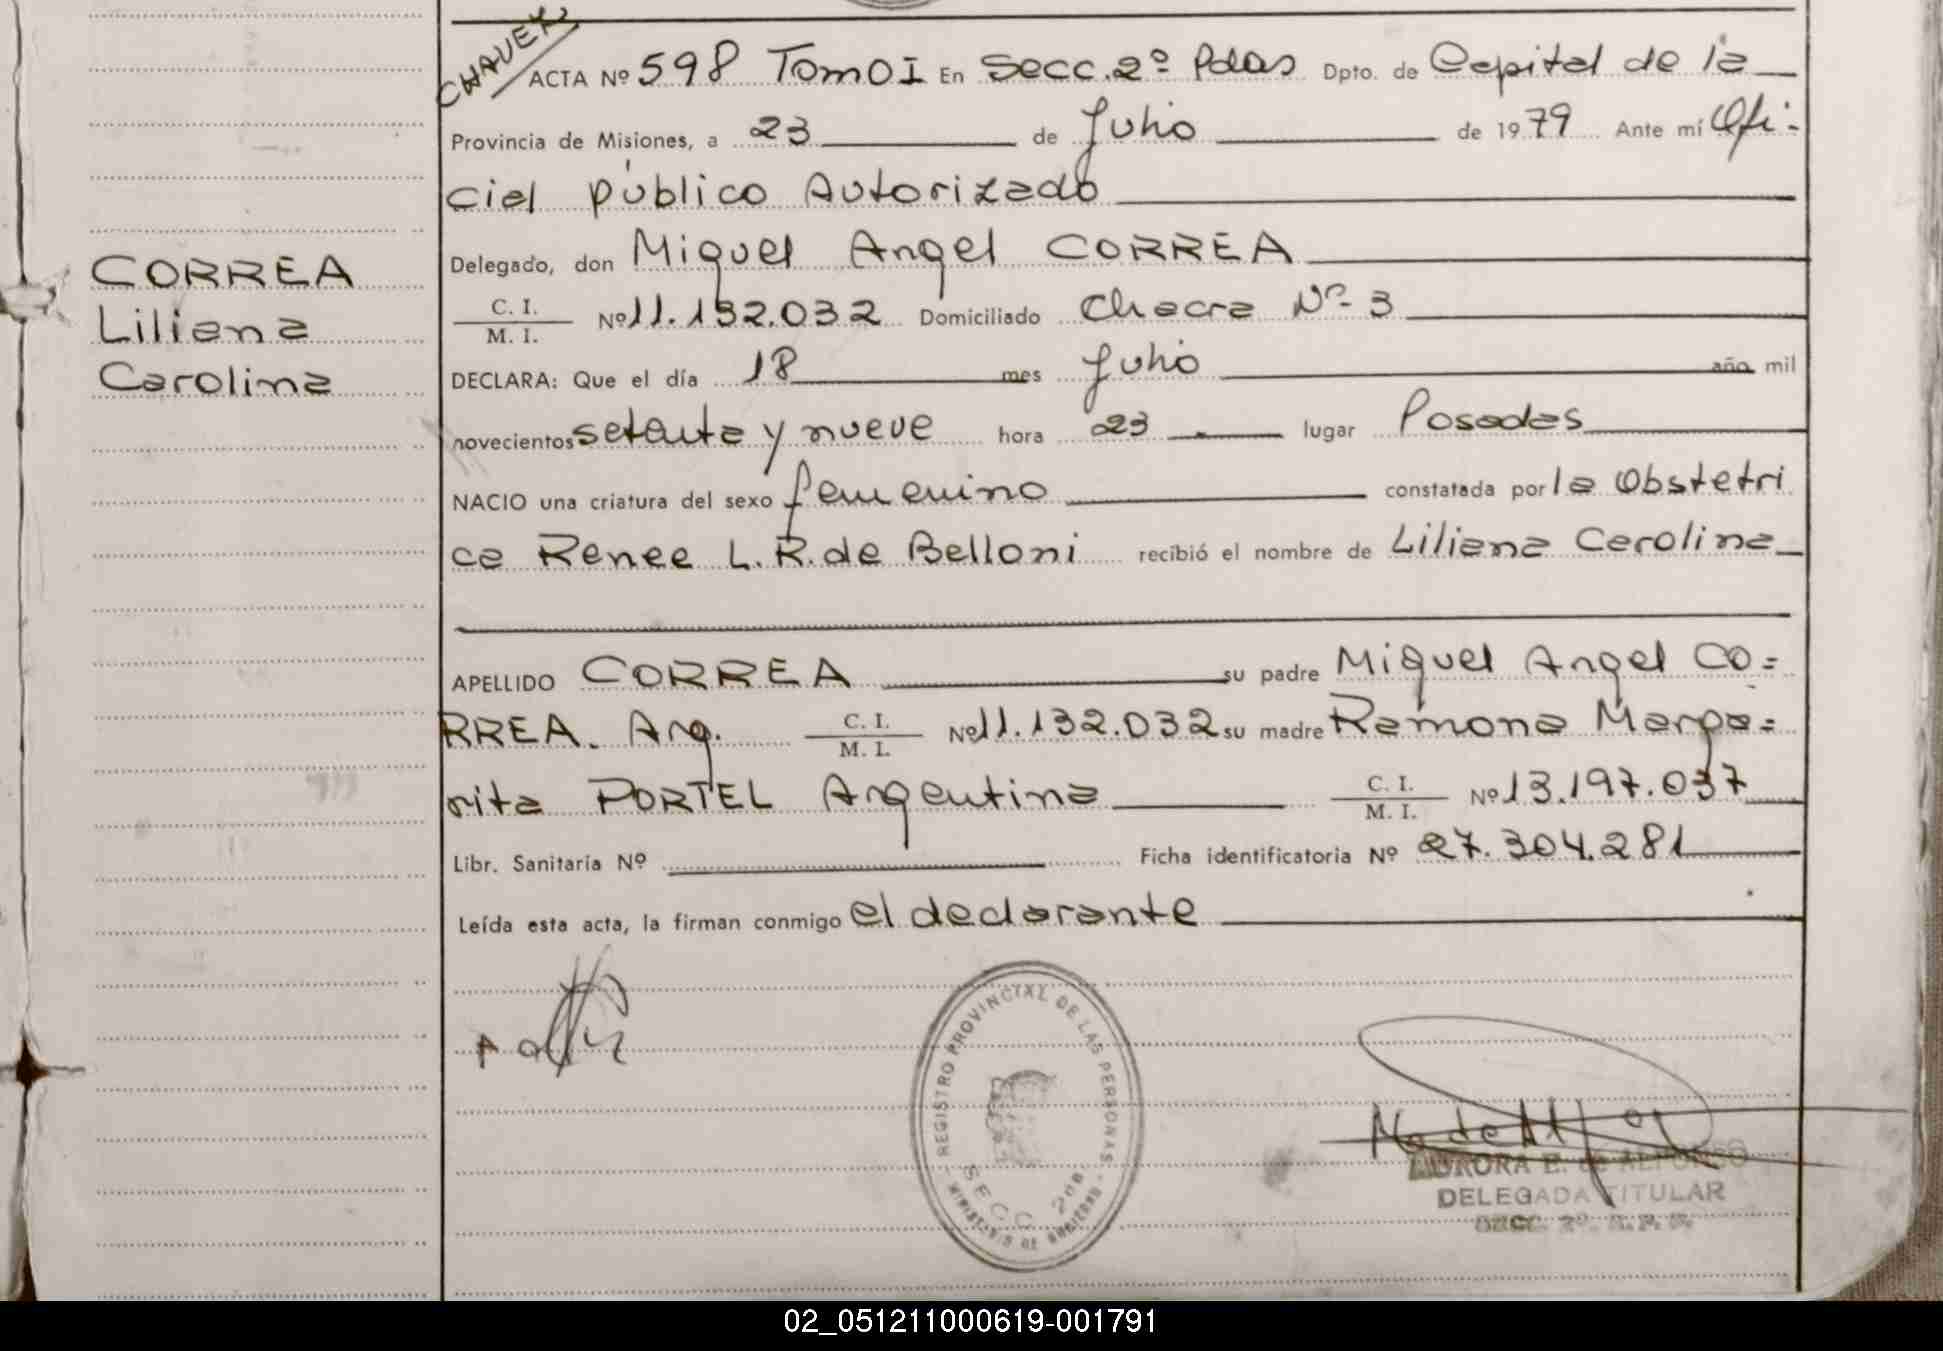 CHAVEZ
ACTA Nº 598 Tomo I En Secc. 2º Pdas Dpto. de Capital de la
Provincia de Misiones, a 23 de Julio de 1979 Ante mí Ofi-
cial público Autorizado
Delegado, don Miguel Angel CORREA
C. I.
M. I.
Nº 11.132.032 Domiciliado Chacra Nº- 3
DECLARA: Que el día 18 mes Julio año mil
novecientos setenta y nueve hora 23 lugar Posadas
NACIO una criatura del sexo femenino constatada por la Obstetri
ca Renee L. R. de Belloni recibió el nombre de Liliana Carolina
APELLIDO CORREA su padre Miguel Angel CO=
RREA. Arg. C. I.
M. I.
Nº 11.132.032 su madre Ramona Marga=
rita PORTEL Argentina C. I.
M. I.
Nº 13.197.037
Libr. Sanitaria Nº Ficha identificatoria Nº 27.304.281
Leída esta acta, la firman conmigo el declarante
CORREA
Liliana
Carolina
REGISTRO PROVINCIAL DE LAS PERSONAS
SECC. 2da.
MINISTERIO DE GOBIERNO
AURORA E. de ALFONSO
DELEGADA TITULAR
SECC. 2º. R. P. P.
02_051211000619-001791